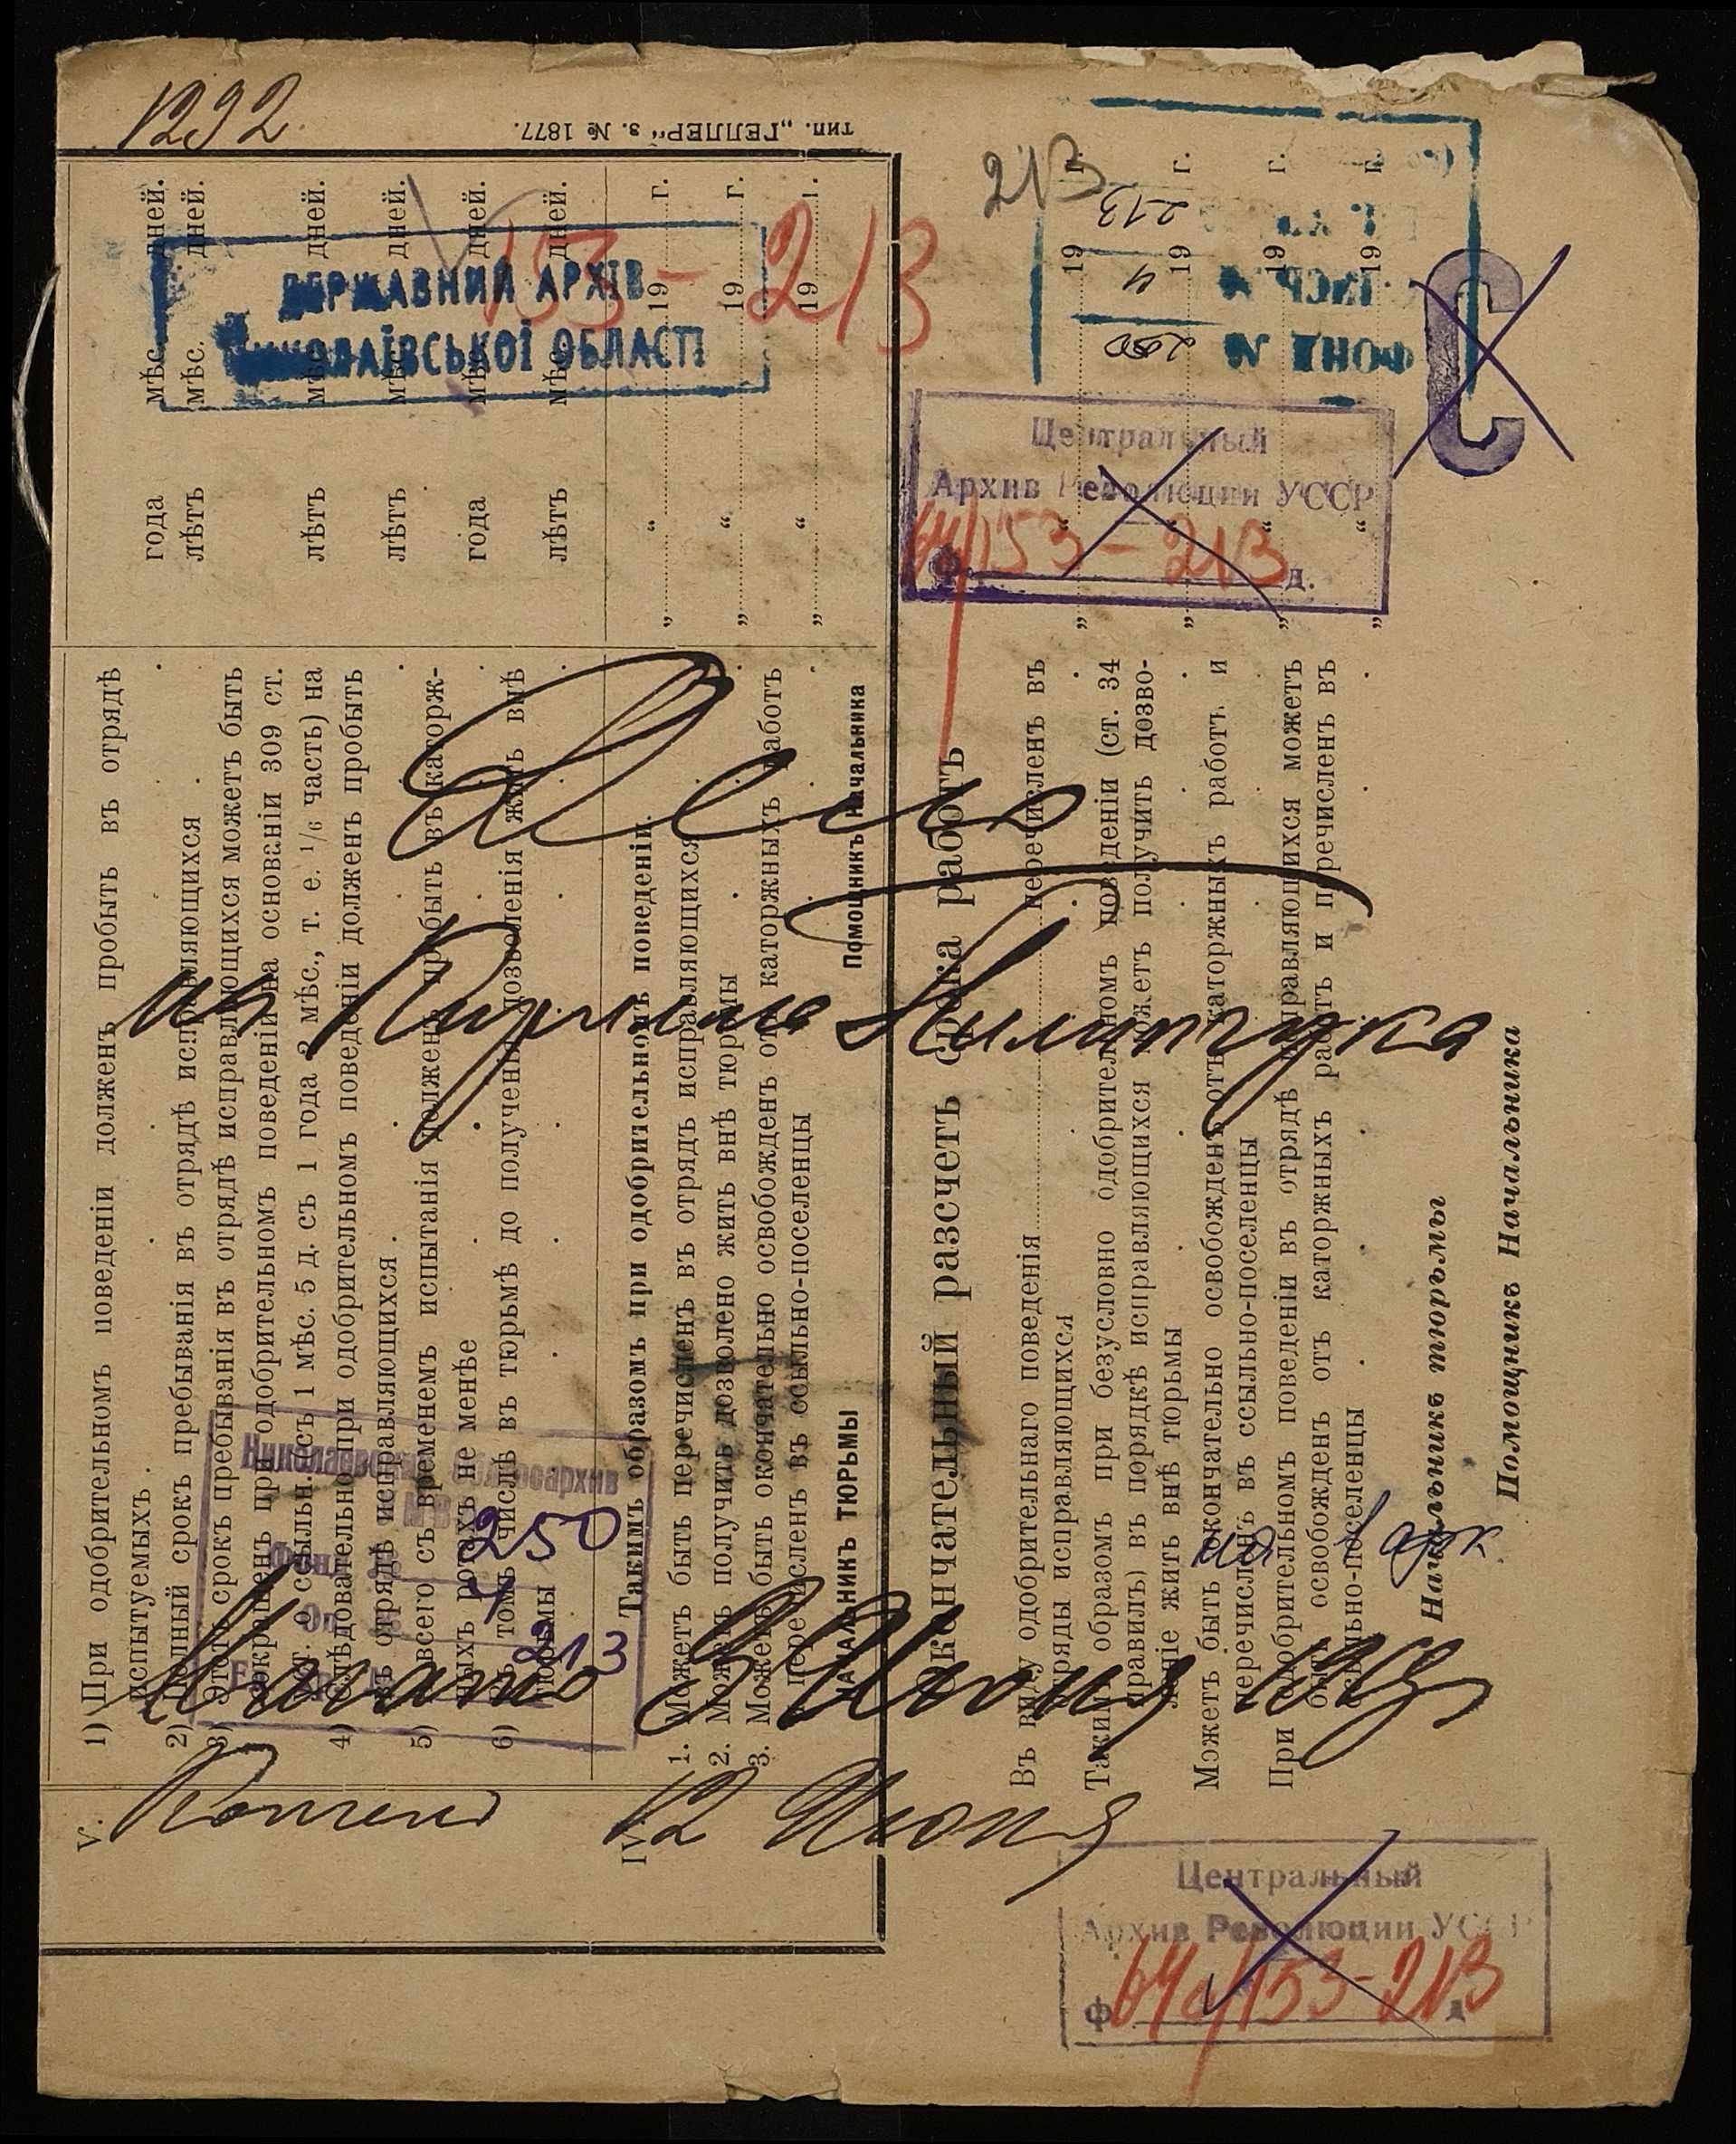 1292
тип. „ГЕЛЛЕРЪ“ з. № 1877.
213
ДЕРЖАВНИЙ АРХІВ
МИКОЛАЇВСЬКОЇ ОБЛАСТІ
153-213
ФОНД № 250
213
Центральный
Архив Революции УССР
Ф. 64/153-213 д.
Дело
Кирилла
Начато 3 Июня
12 Июня
Николаевский Облгосархив
МВД
250
7
213
Центральный
Архив Революции УССР
Ф 64/153-213 д
V.
1) При одобрительномъ поведеніи долженъ пробыть въ отрядѣ
испытуемыхъ.
2) Полный срокъ пребыванія въ отрядѣ исправляющихся
3) Этотъ срокъ пребыванія въ отрядѣ исправляющихся можетъ быть
сокращенъ при одобрительномъ поведеніи на основаніи 309 ст.
уст. о ссыльн. съ 1 мѣс. 5 д. съ 1 года 2 мѣс., т. е. 1/6 часть) на
4) Слѣдовательно при одобрительномъ поведеніи долженъ пробыть
въ отрядѣ исправляющихся
5) А всего съ временемъ испытанія долженъ пробыть въ каторж-
ныхъ работахъ не менѣе
6) Въ томъ числѣ въ тюрьмѣ до полученія дозволенія жить внѣ
тюрьмы
года мѣс. дней.
лѣтъ мѣс. дней.
лѣтъ мѣс. дней.
лѣтъ мѣс. дней.
года мѣс. дней.
лѣтъ мѣс. дней.
IV.
Такимъ образомъ при одобрительномъ поведеніи.
1. Можетъ быть перечисленъ въ отрядъ исправляющихся
2. Можетъ получить дозволено жить внѣ тюрьмы
3. Можетъ быть окончательно освобожденъ отъ каторжныхъ работъ
и перечисленъ въ ссыльно-поселенцы
„ “ 19 г.
„ “ 19 г.
„ “ 19 г.
НАЧАЛЬНИКЪ ТЮРЬМЫ
Помощникъ Начальника
Окончательный разсчетъ срока работъ
Въ виду одобрительнаго поведенія перечисленъ въ
разряды исправляющихся
Такимъ образомъ при безусловно одобрительномъ поведеніи (ст. 34
правилъ) въ порядкѣ исправляющихся можетъ получить дозво-
леніе жить внѣ тюрьмы
Можетъ быть окончательно освобожденъ отъ каторжныхъ работъ и
перечисленъ въ ссыльно-поселенцы
При одобрительномъ поведеніи въ отрядѣ исправляющихся можетъ
быть освобожденъ отъ каторжныхъ работъ и перечисленъ въ
ссыльно-поселенцы
„ “ 19 г.
„ “ 19 г.
„ “ 19 г.
„ “ 19 г.
Начальникъ тюрьмы
Помощникъ Начальника